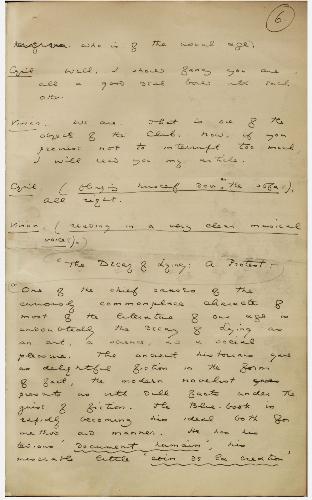 6
who is of the usual age;
Cyril. Well, I should fancy you are
all a good deal bored with each
other.
Vivian. We are. That is one of the
objects of the Club. Now, if you
promise not to interrupt too much,
I will read you my article.
Cyril. ( flinging himself down on the sofa ).
all right.
Vivian. ( reading in a very clear musical
voice ).
"The Decay of Lying: A Protest.
"One of the chief causes of the
curiously commonplace character of
most of the literature of our age is
undoubtedly the decay of Lying as
an art, a science, and a social
pleasure. The ancient historians gave
us delightful fiction in the form
of fact, the modern novelist
presents us with dull facts under the
guise of fiction. The Blue-book is
rapidly becoming his ideal both for
method and manner. He has his
tedious 'document humain' his
miserable little 'coin de la creation'